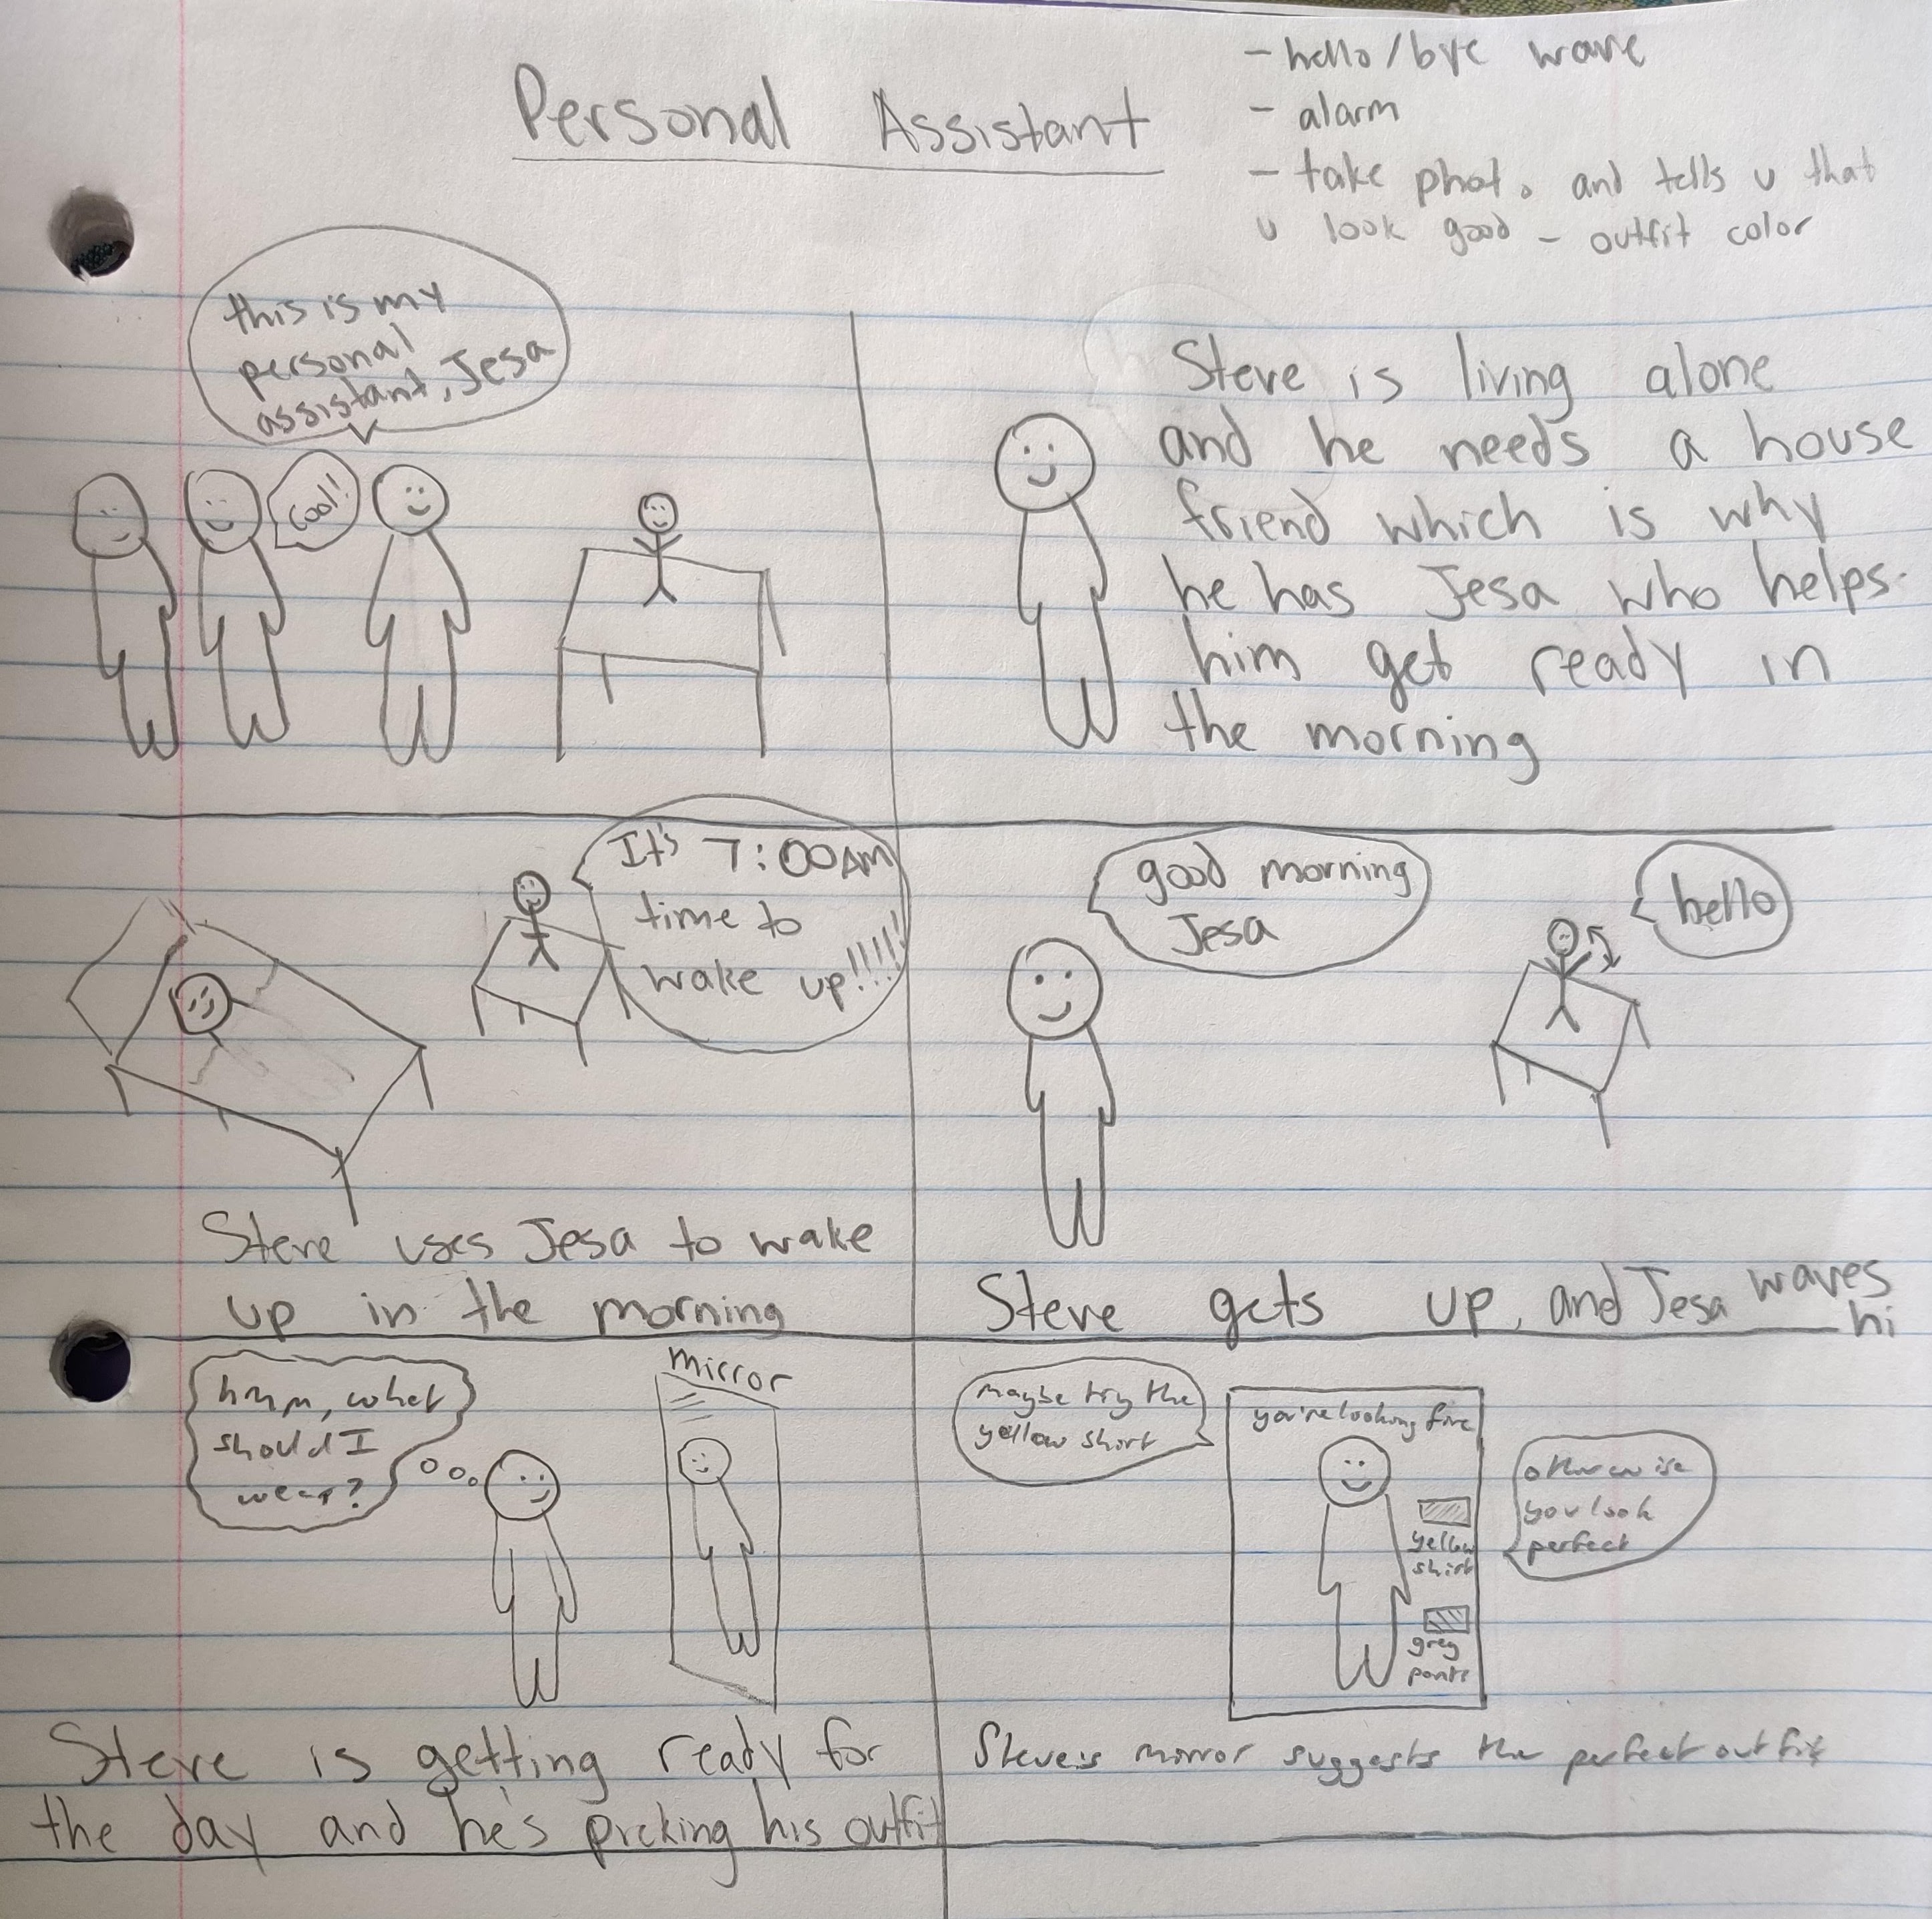 Personal Assistant
- hello/bye wave
- alarm
- take phot. and tells u that
u look good - outfit color
this is my
personal
assistant, Jesa
cool!
Steve is living alone
and he needs a house
friend which is why
he has Jesa who helps
him get ready in
the morning
It's 7:00AM
time to
wake up!!!!!
Steve uses Jesa to wake
up in the morning
good morning
Jesa
hello
Steve gets up, and Jesa waves
hi
hmm, what
should I
wear?
mirror
Steve is getting ready for
the day and he's picking his outfit
maybe try the
yellow shirt
you're looking fine
yellow
shirt
grey
pants
otherwise
you look
perfect
Steve's mirror suggests the perfect outfit